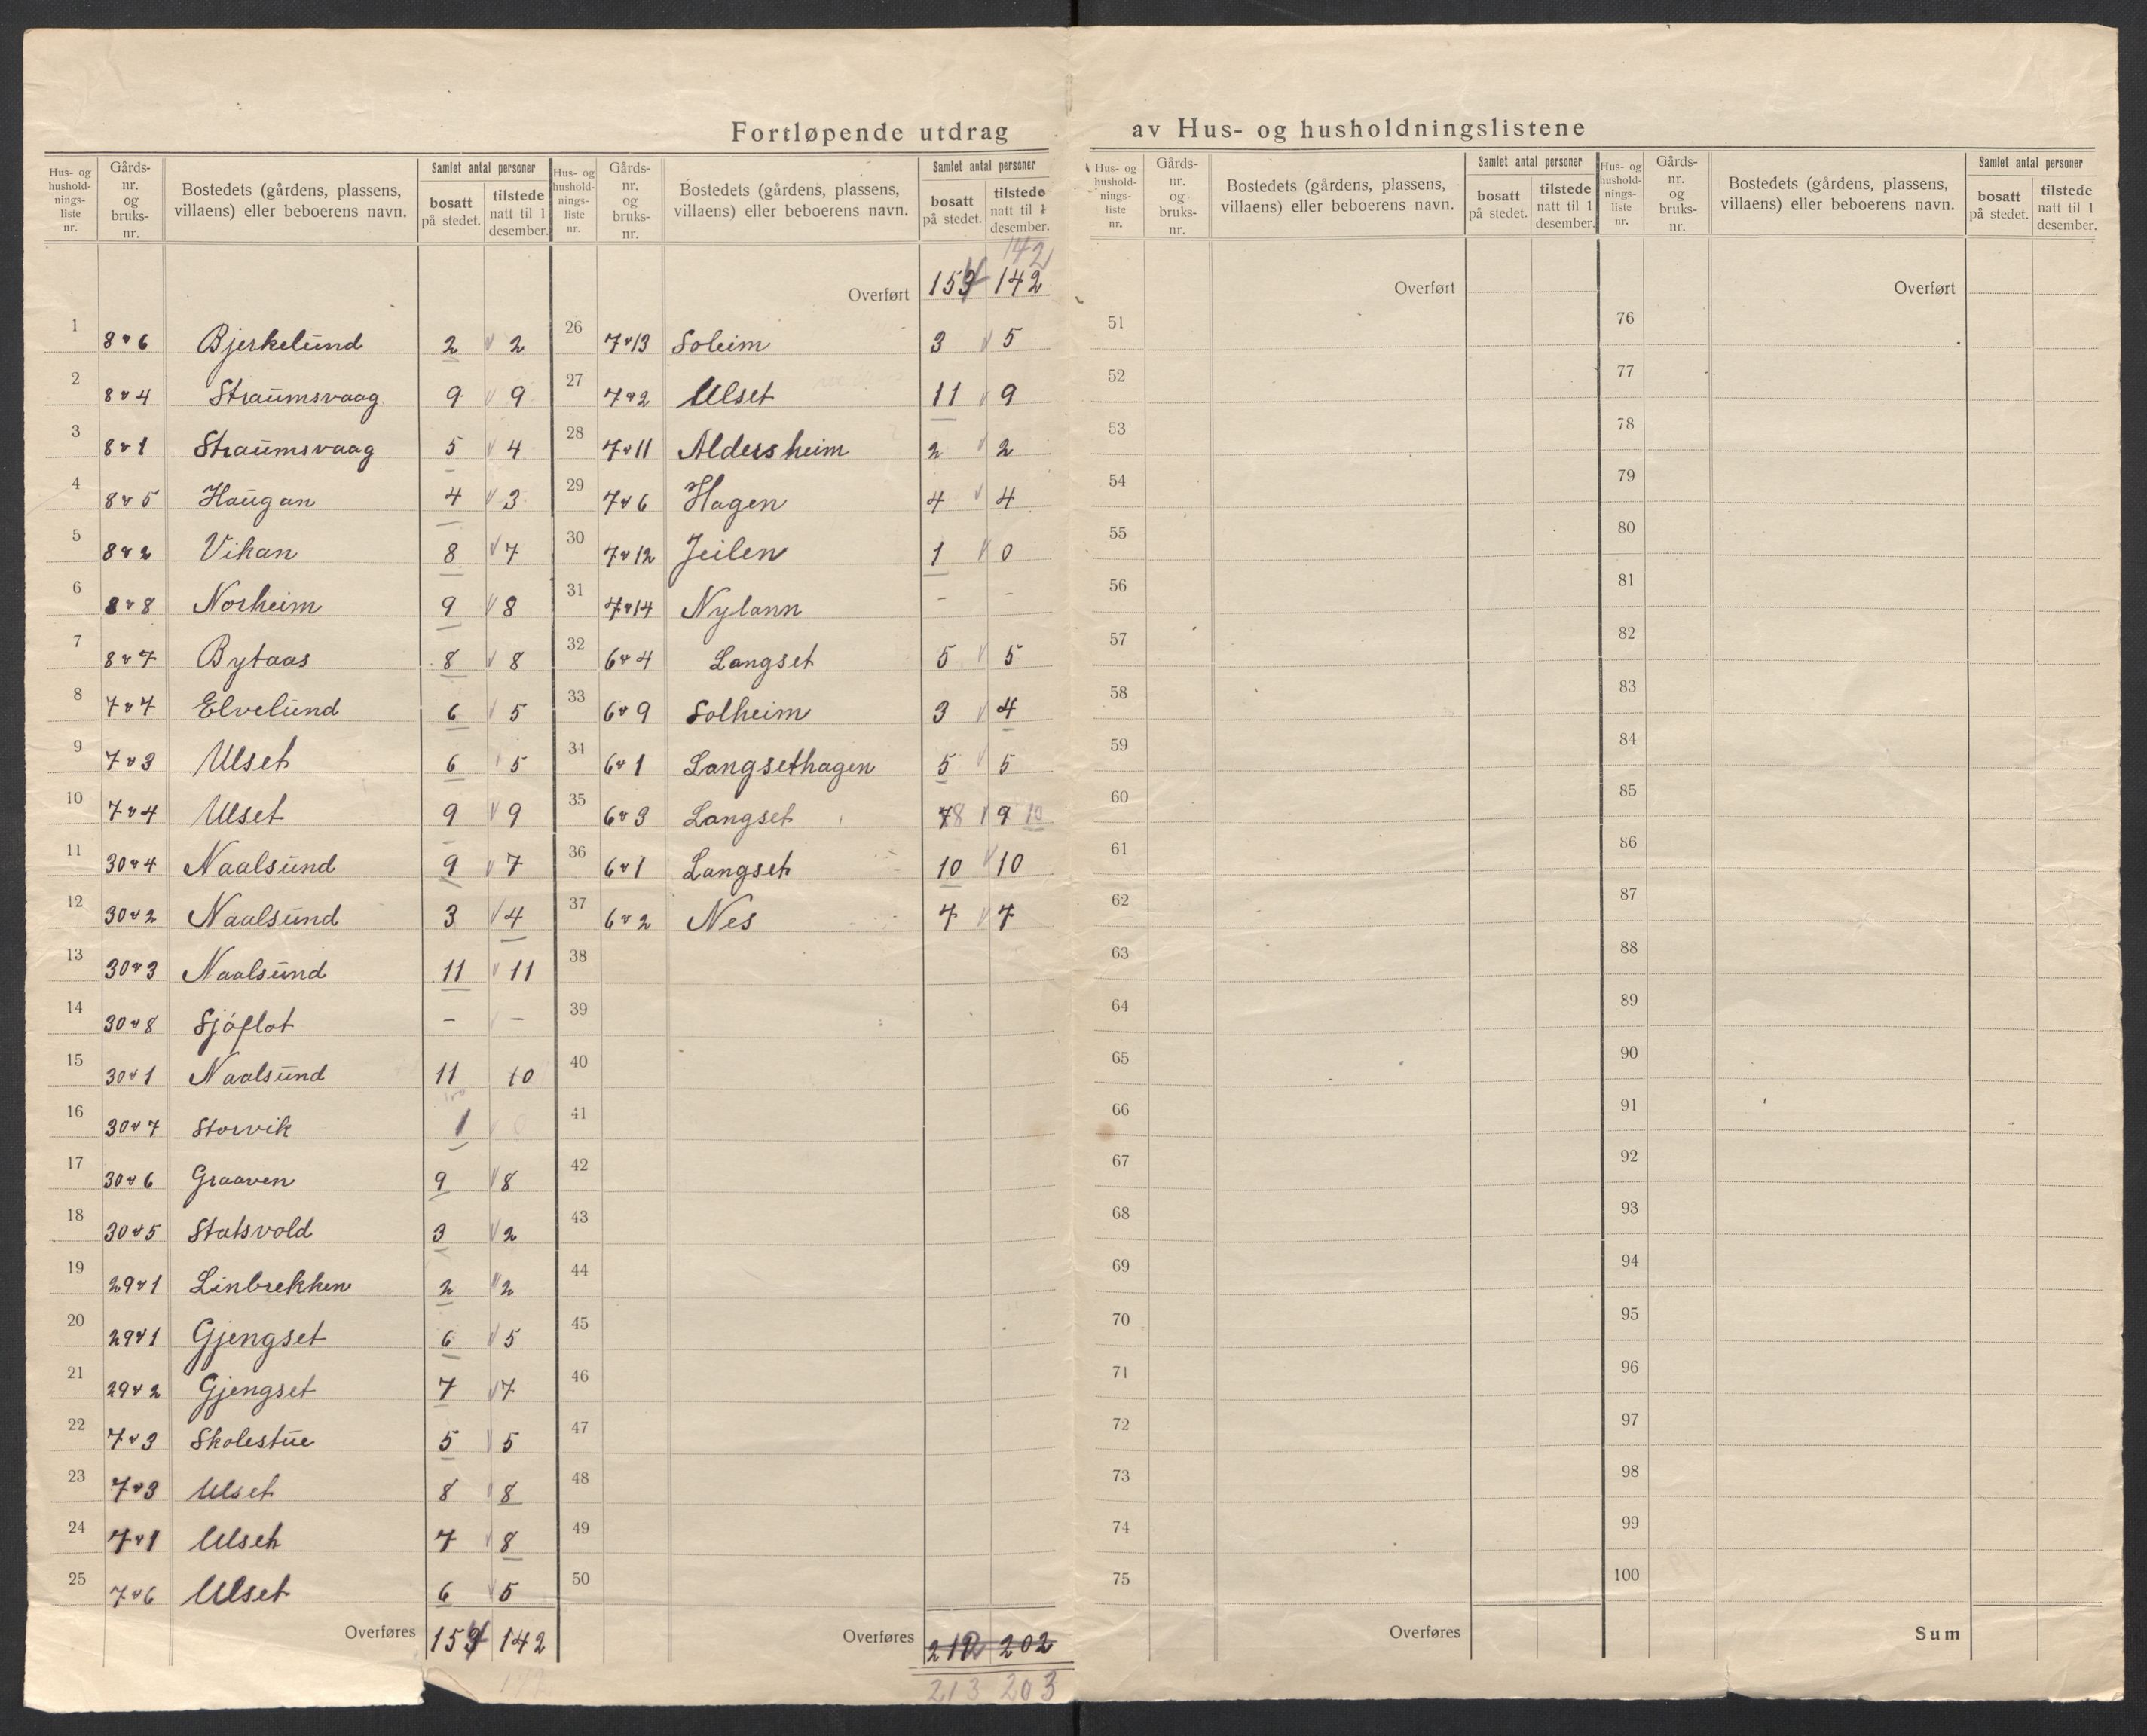 Fortløpende utdrag av Hus- og husholdningslistene
Hus- og husholdnings-liste nr. Gårds-nr. og bruks-nr. Bostedets (gårdens, plassens, villaens) eller beboerens navn. Samlet antal personer bosatt på stedet. tilstede natt til 1 desember.
1 8 v 6 Bjerkelund 2 v 2
2 8 v 4 Straumsvaag 9 v 9
3 8 v 1 Straumsvaag 5 v 4
4 8 v 5 Haugan 4 v 3
5 8 v 2 Vikan 8 v 7
6 8 v 8 Norheim 9 v 8
7 8 v 7 Bytaas 8 v 8
8 7 v 7 Elvelund 6 v 5
9 7 v 3 Ulset 6 v 5
10 7 v 4 Ulset 9 v 9
11 30 v 4 Naalsund 9 v 7
12 30 v 2 Naalsund 3 v 4
13 30 v 3 Naalsund 11 v 11
14 30 v 8 Sjøflot - v -
15 30 v 1 Naalsund 11 10
16 30 v 7 Storvik 1 v 0
17 30 v 6 Graaven 9 v 8
18 30 v 5 Statsvold 3 v 2
19 29 v 1 Linbrekken 2 v 2
20 29 v 1 Gjengset 6 v 5
21 29 v 2 Gjengset 7 v 7
22 7 v 3 Skolestue 5 v 5
23 7 v 3 Ulset 8 v 8
24 7 v 1 Ulset 7 v 8
25 7 v 6 Ulset 6 v 5
Overføres 154 142
Hus- og husholdnings-liste nr. Gårds-nr. og bruks-nr. Bostedets (gårdens, plassens, villaens) eller beboerens navn. Samlet antal personer bosatt på stedet. tilstede natt til 1 desember.
142
Overført 154 142
26 7 v 13 Soleim 3 v 5
27 7 v 2 Ulset 11 v 9
28 7 v 11 Aldersheim 2 v 2
29 7 v 6 Hagen 4 v 4
30 7 v 12 Jeilen 1 v 0
31 7 v 14 Nylann - -
32 6 v 4 Langset 5 v 5
33 6 v 9 Solheim 3 v 4
34 6 v 1 Langsethagen 5 v 5
35 6 v 3 Langset 7 8 v 9 10
36 6 v 1 Langset 10 v 10
37 6 v 2 Nes 7 v 7
38
39
40
41
42
43
44
45
46
47
48
49
50
Overføres 212 202
213 203
Hus- og husholdnings-liste nr. Gårds-nr. og bruks-nr. Bostedets (gårdens, plassens, villaens) eller beboerens navn. Samlet antal personer bosatt på stedet. tilstede natt til 1 desember.
Overført
51
52
53
54
55
56
57
58
59
60
61
62
63
64
65
66
67
68
69
70
71
72
73
74
75
Overføres
Hus- og husholdnings-liste nr. Gårds-nr. og bruks-nr. Bostedets (gårdens, plassens, villaens) eller beboerens navn. Samlet antal personer bosatt på stedet. tilstede natt til 1 desember.
Overført
76
77
78
79
80
81
82
83
84
85
86
87
88
89
90
91
92
93
94
95
96
97
98
99
100
Sum